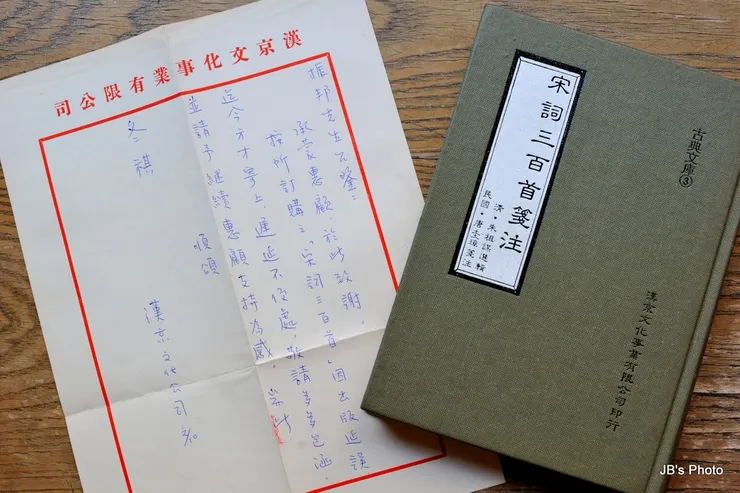 漢京文化事業有限公司
振邦先生公鑒：
承蒙惠顧，於此致謝。
所訂購之「宋詞三百首」因出版延誤
迄今方才寄上，遲延不便處，敬請多多包涵，
並請予繼續惠顧支持為感。耑此
順頌
冬祺
漢京文化公司
古典文庫③
宋詞三百首箋注
清・朱祖謀選輯
民國・唐圭璋箋注
漢京文化事業有限公司印行
JB's Photo